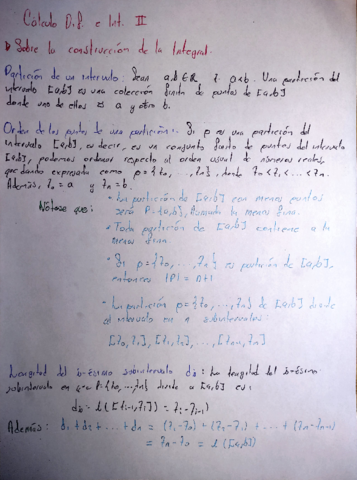 Cálculo D.I. e Int. II
Sobre la construcción de la Integral.
Partición de un intervalo: Sean a,b∈ℝ y a<b. Una partición del
intervalo [a,b] es una colección finita de puntos de [a,b]
donde uno de ellos es a y otro b.
Orden de los puntos de una partición: Si P es una partición del
intervalo [a,b], es decir, es un conjunto finito de puntos del intervalo
[a,b], podemos ordenar respecto al orden usual de números reales,
quedando expresado como P={t₀,...,tₙ}, donde t₀<t₁<...<tₙ.
Además, t₀=a y tₙ=b.
Nótese que: • La partición de [a,b] con menos puntos
será P={a,b}, llamada la menos fina.
• Toda partición de [a,b] contiene a la
menos fina
• Si P={t₀,...,tₙ} es partición de [a,b],
entonces |P|=n+1
• La partición P={t₀,...,tₙ} de [a,b] divide
el intervalo en n subintervalos:
[t₀,t₁], [t₁,t₂],...,[tₙ₋₁,tₙ]
Longitud del i-ésimo subintervalo dᵢ: La longitud del i-ésimo
subintervalo en que P={t₀,...,tₙ} divide a [a,b] es:
dᵢ = l([tᵢ₋₁,tᵢ]) = tᵢ-tᵢ₋₁
Además: d₁+d₂+...+dₙ = (t₁-t₀)+(t₂-t₁)+...+(tₙ-tₙ₋₁)
= tₙ-t₀ = l([a,b])